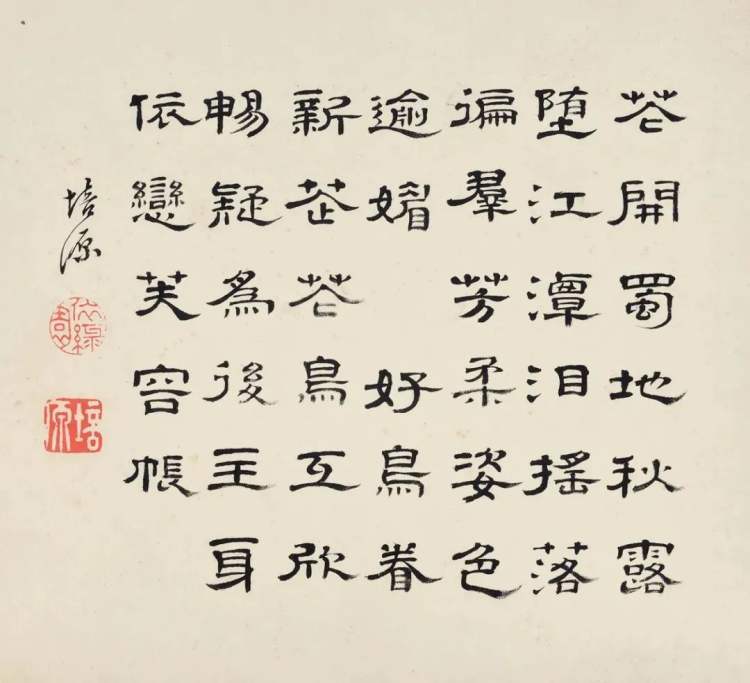 花開蜀地秋露
堕江潭泪搖落
徧羣芳柔姿色
逾媚 好鳥眷
新花花鳥互欣
暢疑爲後主身
依戀芙容帳
培源
培源